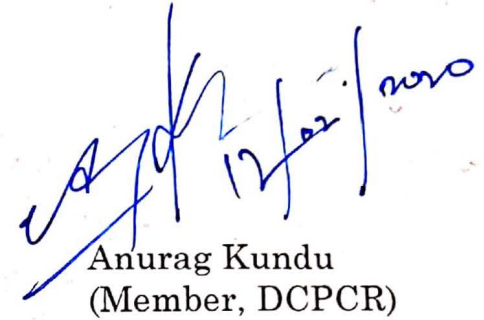 12/02/2020
Anurag Kundu
(Member, DCPCR)